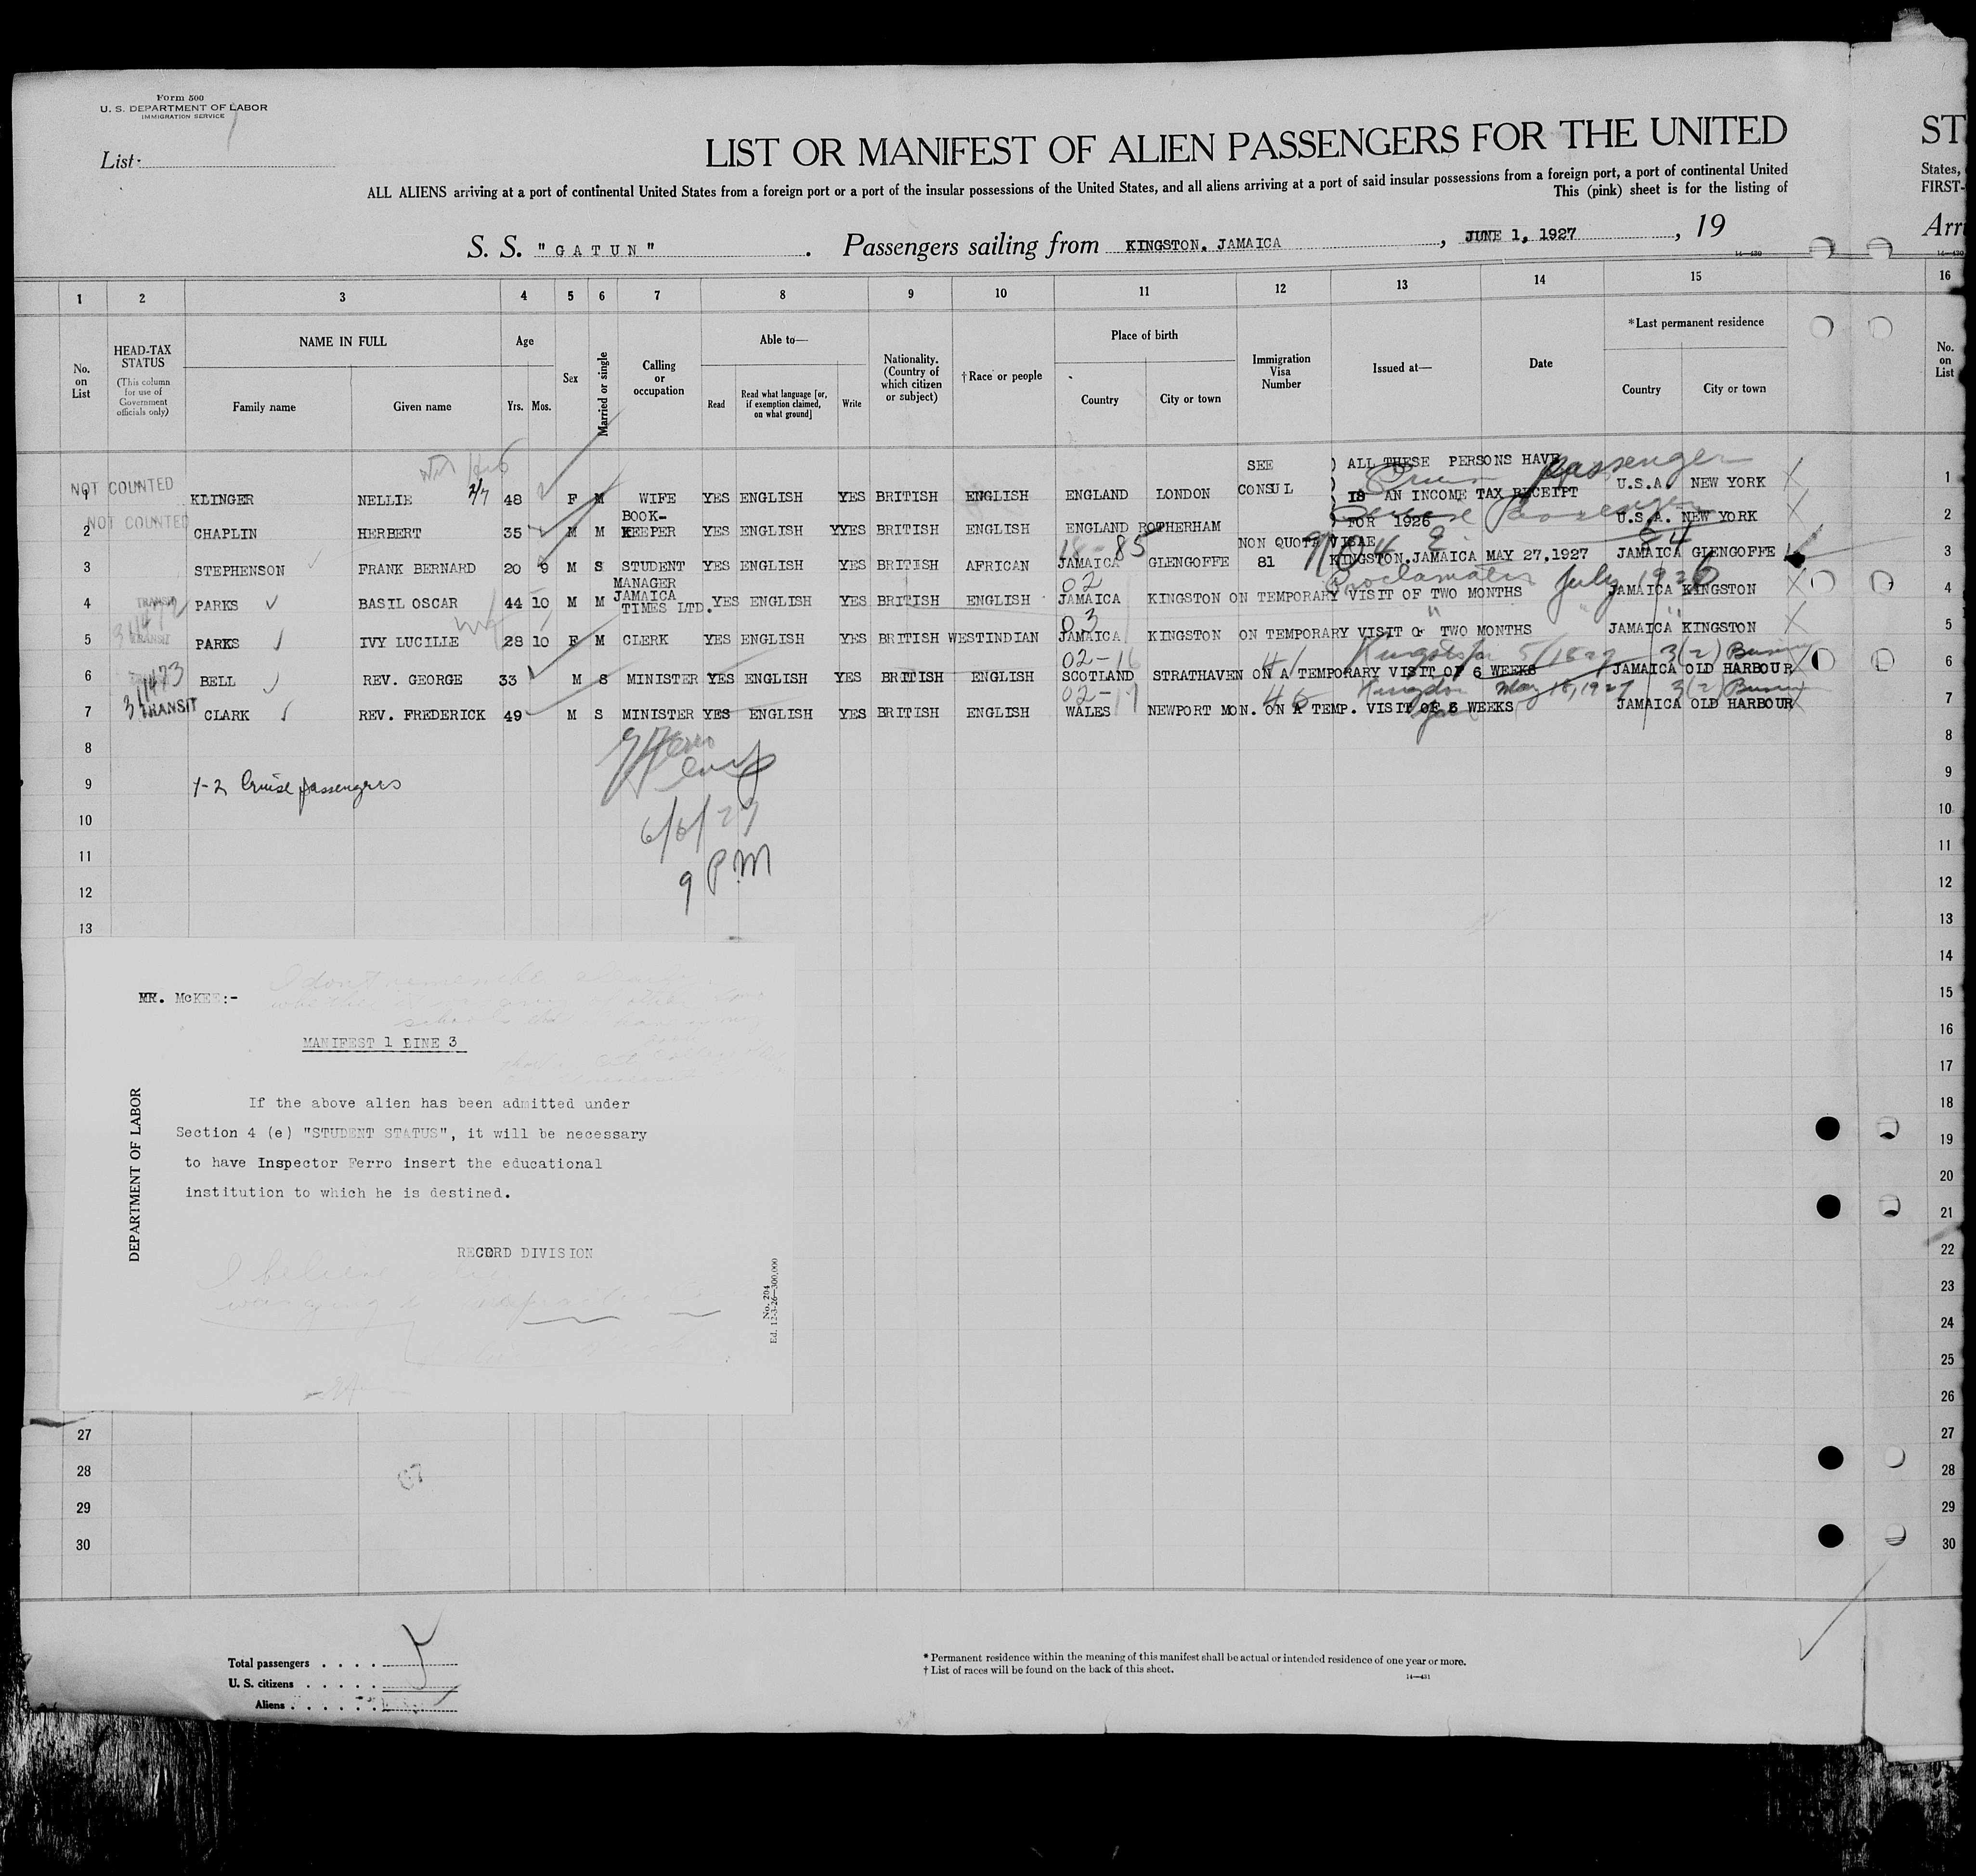 Form 500
U. S. DEPARTMENT OF LABOR
IMMIGRATION SERVICE
List
LIST OR MANIFEST OF ALIEN PASSENGERS FOR THE UNITED
ST
ALL ALIENS arriving at a port of continental United States from a foreign port or a port of the insular possessions of the United States, and all aliens arriving at a port of said insular possessions from a foreign port, a port of continental United
States,
This (pink) sheet is for the listing of
FIRST-
S. S. "GATUN". Passengers sailing from KINGSTON. JAMAICA, JUNE 1, 1927, 19
Arri
14—430
1 2 3 4 5 6 7 8 9 10 11 12 13 14 15 16
No. on List
HEAD-TAX STATUS
(This column for use of Government officials only)
NAME IN FULL
Family name Given name
Age
Yrs. Mos.
Sex
Married or single
Calling or occupation
Able to—
Read
Read what language [or, if exemption claimed, on what ground]
Write
Nationality. (Country of which citizen or subject)
†Race or people
Place of birth
Country City or town
Immigration Visa Number
Issued at—
Date
*Last permanent residence
Country City or town
No. on List
NOT COUNTED
SEE ) ALL THESE PERSONS HAVE passenger
1 KLINGER NELLIE 48 F M WIFE YES ENGLISH YES BRITISH ENGLISH ENGLAND LONDON CONSUL AN INCOME TAX RECEIPT U.S.A. NEW YORK 1
NOT COUNTED
2 CHAPLIN HERBERT 35 M M BOOK-KEEPER YES ENGLISH YYES BRITISH ENGLISH ENGLAND ROTHERHAM FOR 1926 U.S.A. NEW YORK 2
NON QUOTA VISAE
3 STEPHENSON FRANK BERNARD 20 9 M S STUDENT YES ENGLISH YES BRITISH AFRICAN JAMAICA GLENGOFFE 81 KINGSTON.JAMAICA MAY 27,1927 JAMAICA GLENGOFFE 3
Proclamation July 1926
4 TRANSIT PARKS BASIL OSCAR 44 10 M M MANAGER JAMAICA TIMES LTD. YES ENGLISH YES BRITISH ENGLISH JAMAICA KINGSTON ON TEMPORARY VISIT OF TWO MONTHS JAMAICA KINGSTON 4
5 TRANSIT PARKS IVY LUCILLE 28 10 F M CLERK YES ENGLISH YES BRITISH WESTINDIAN JAMAICA KINGSTON ON TEMPORARY VISIT OF TWO MONTHS JAMAICA KINGSTON 5
02-16
6 BELL REV. GEORGE 33 M S MINISTER YES ENGLISH YES BRITISH ENGLISH SCOTLAND STRATHAVEN ON A TEMPORARY VISIT OF 6 WEEKS JAMAICA OLD HARBOUR 6
311473
02-17 May 18, 1927 3(2)
7 TRANSIT CLARK REV. FREDERICK 49 M S MINISTER YES ENGLISH YES BRITISH ENGLISH WALES NEWPORT MON. ON A TEMP. VISIT OF 6 WEEKS JAMAICA OLD HARBOUR 7
8 8
9 1-2 Cruise passengers 9
6/6/27
10 10
9 P.M
11 11
12 12
13 13
14
MR. McKEE:-
15
MANIFEST 1 LINE 3
16
17
If the above alien has been admitted under
18
Section 4 (e) "STUDENT STATUS", it will be necessary
19
to have Inspector Ferro insert the educational
20
institution to which he is destined.
21
RECORD DIVISION
22
DEPARTMENT OF LABOR
No. 204
Ed. 12-3-26—300,000
23
24
25
26
27 27
28 28
29 29
30 30
Total passengers
U. S. citizens
Aliens
* Permanent residence within the meaning of this manifest shall be actual or intended residence of one year or more.
† List of races will be found on the back of this sheet.
14—431